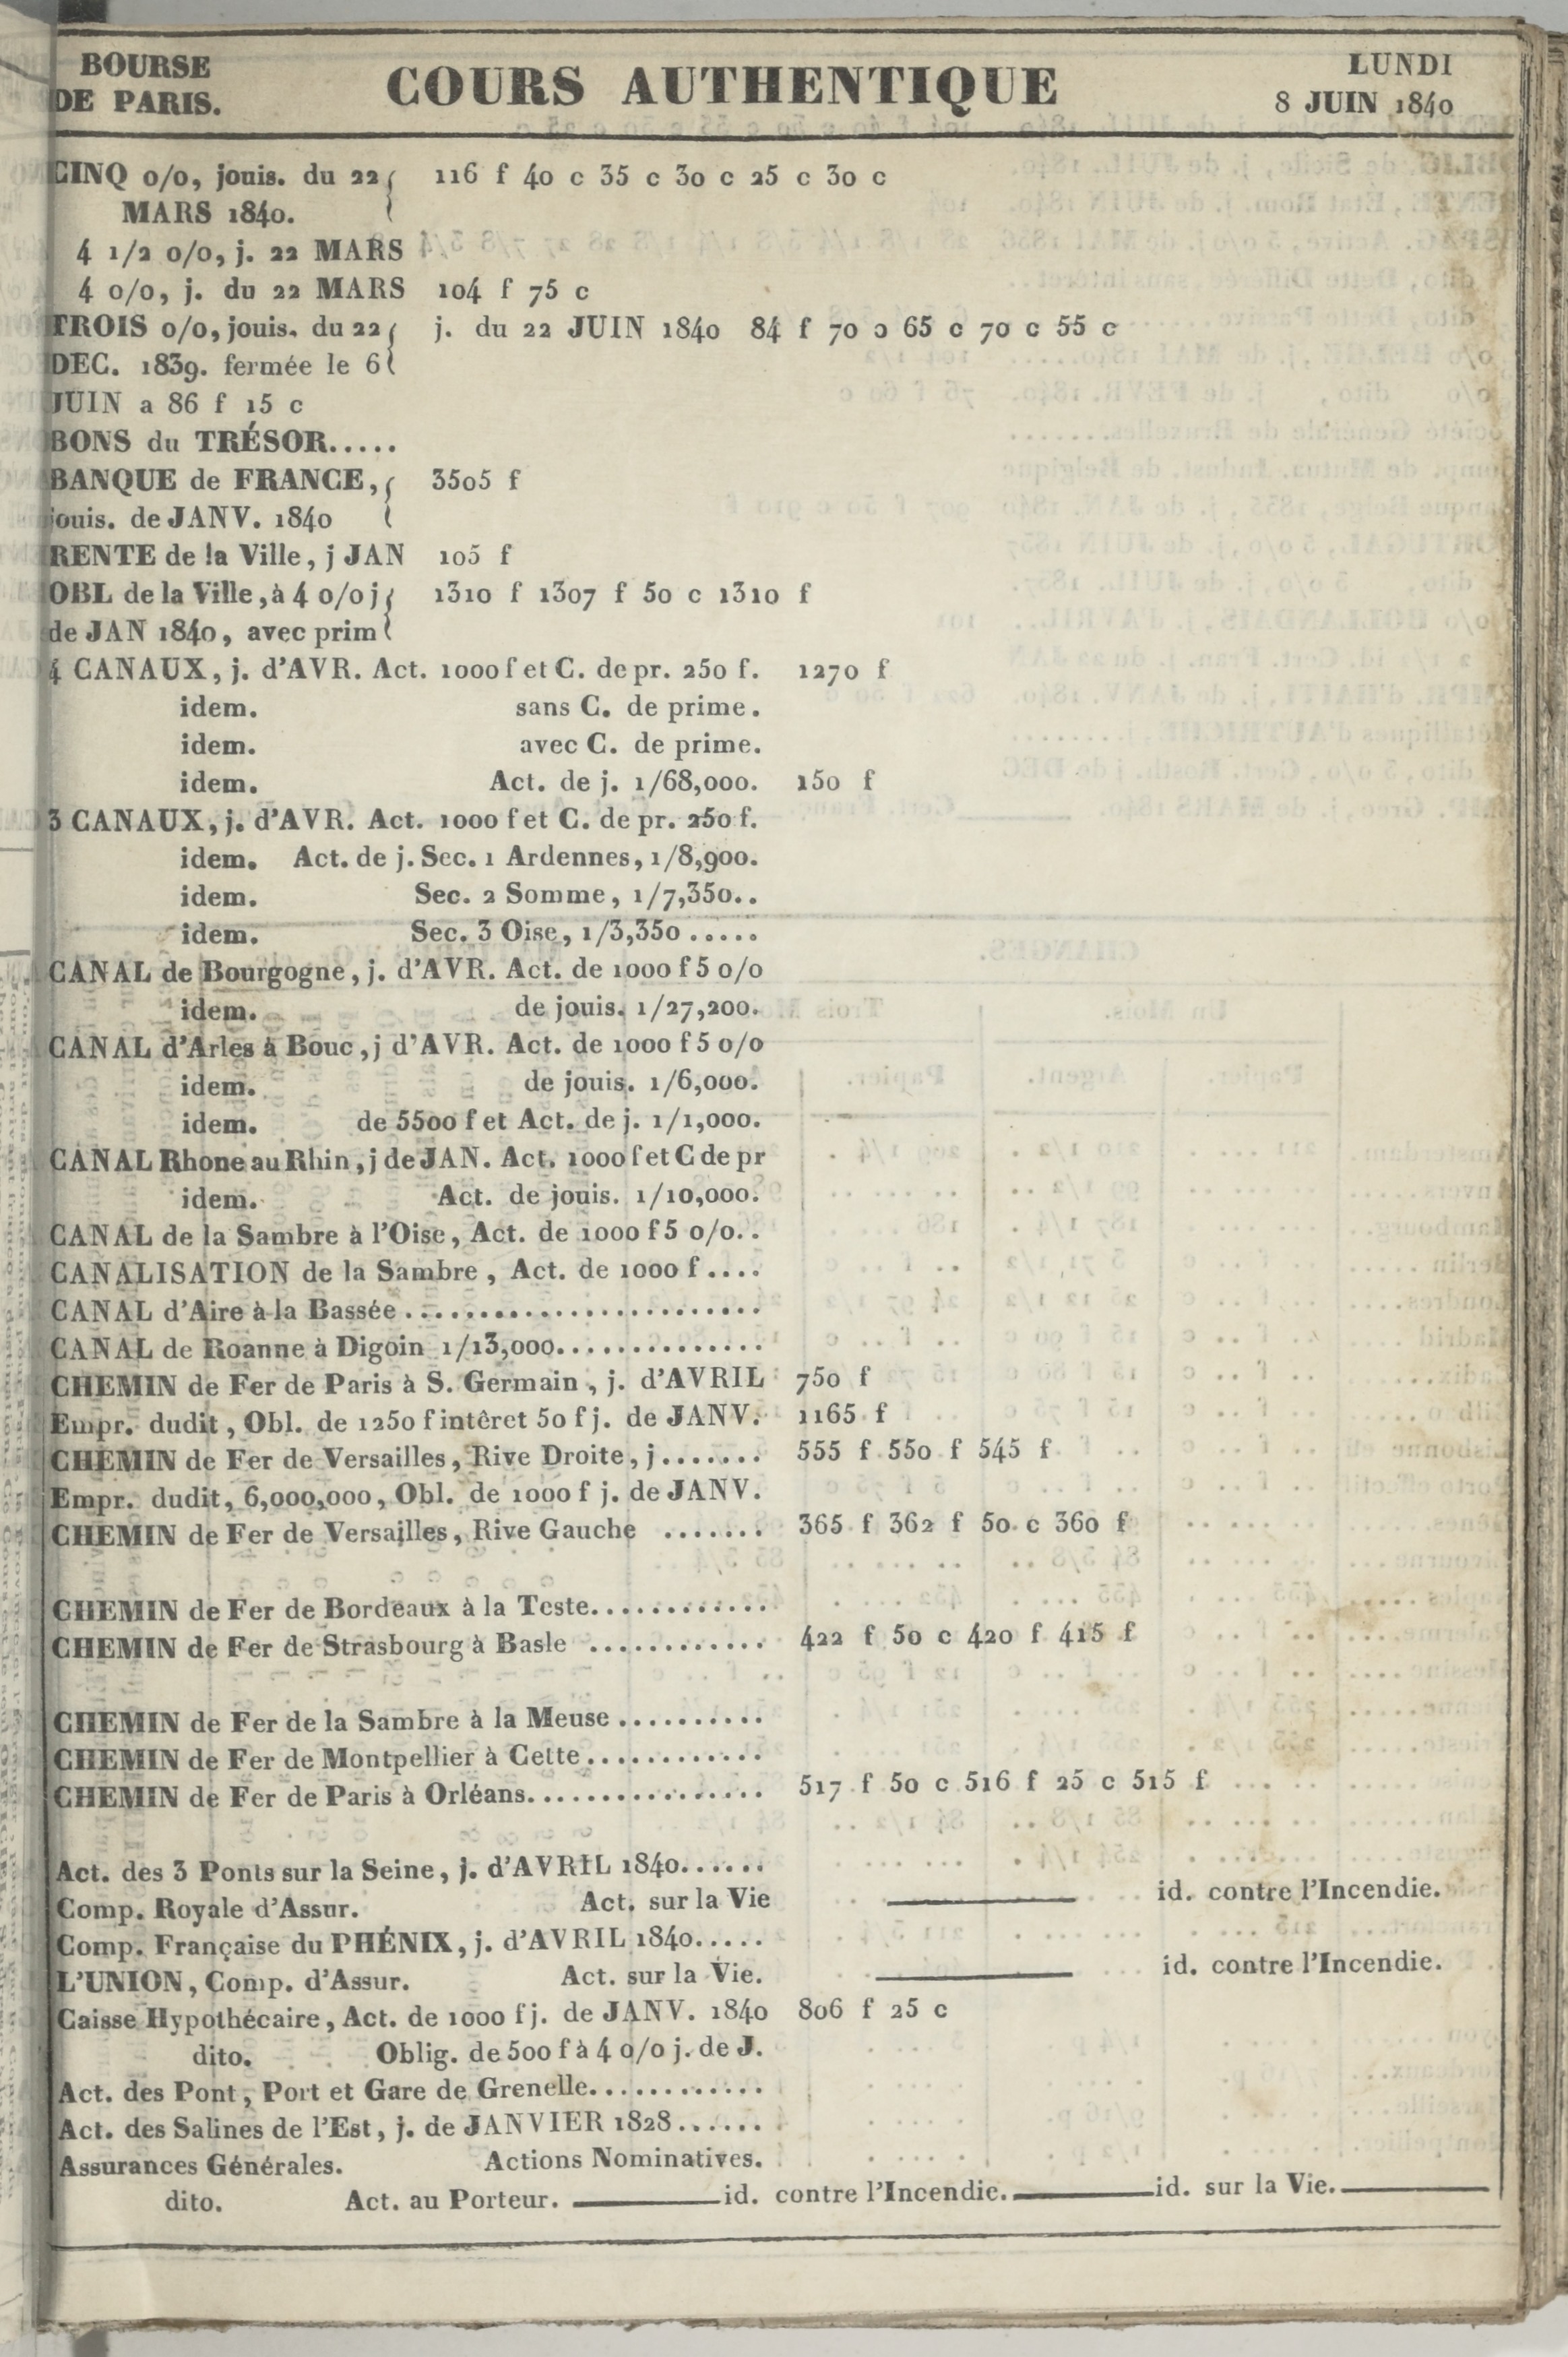 BOURSE
DE PARIS.
COURS AUTHENTIQUE
LUNDI
8 JUIN 1840
CINQ 0/0, jouis. du 22 116 f 40 c 35 c 30 c 25 c 30 c
MARS 1840.
4 1/2 0/0, j. 22 MARS
4 0/0, j. du 22 MARS 104 f 75 c
TROIS 0/0, jouis. du 22 j. du 22 JUIN 1840 84 f 70 c 65 c 70 c 55 c
DEC. 1839. fermée le 6
JUIN a 86 f 15 c
BONS du TRÉSOR.....
BANQUE de FRANCE, 3505 f
jouis. de JANV. 1840
RENTE de la Ville, j JAN 105 f
OBL de la Ville, à 4 0/0 j 1310 f 1307 f 50 c 1310 f
de JAN 1840, avec prim
4 CANAUX, j. d'AVR. Act. 1000 f et C. de pr. 250 f. 1270 f
idem. sans C. de prime.
idem. avec C. de prime.
idem. Act. de j. 1/68,000. 150 f
3 CANAUX, j. d'AVR. Act. 1000 f et C. de pr. 250 f.
idem. Act. de j. Sec. 1 Ardennes, 1/8,900.
idem. Sec. 2 Somme, 1/7,350..
idem. Sec. 3 Oise, 1/3,350.....
CANAL de Bourgogne, j. d'AVR. Act. de 1000 f 5 0/0
idem. de jouis. 1/27,200.
CANAL d'Arles à Bouc, j d'AVR. Act. de 1000 f 5 0/0
idem. de jouis. 1/6,000.
idem. de 5500 f et Act. de j. 1/1,000.
CANAL Rhone au Rhin, j de JAN. Act. 1000 f et C de pr
idem. Act. de jouis. 1/10,000.
CANAL de la Sambre à l'Oise, Act. de 1000 f 5 0/0..
CANALISATION de la Sambre, Act. de 1000 f....
CANAL d'Aire à la Bassée........................
CANAL de Roanne à Digoin 1/13,000..............
CHEMIN de Fer de Paris à S. Germain, j. d'AVRIL 750 f
Empr. dudit, Obl. de 1250 f intêret 50 f j. de JANV. 1165 f
CHEMIN de Fer de Versailles, Rive Droite, j....... 555 f 550 f 545 f
Empr. dudit, 6,000,000, Obl. de 1000 f j. de JANV.
CHEMIN de Fer de Versailles, Rive Gauche ....... 365 f 362 f 50 c 360 f
CHEMIN de Fer de Bordeaux à la Teste............
CHEMIN de Fer de Strasbourg à Basle ............ 422 f 50 c 420 f 415 f
CHEMIN de Fer de la Sambre à la Meuse..........
CHEMIN de Fer de Montpellier à Cette............
CHEMIN de Fer de Paris à Orléans................ 517 f 50 c 516 f 25 c 515 f
Act. des 3 Ponts sur la Seine, j. d'AVRIL 1840......
Comp. Royale d'Assur. Act. sur la Vie ——— id. contre l'Incendie.
Comp. Française du PHÉNIX, j. d'AVRIL 1840.....
L'UNION, Comp. d'Assur. Act. sur la Vie. ——— id. contre l'Incendie.
Caisse Hypothécaire, Act. de 1000 f j. de JANV. 1840 806 f 25 c
dito. Oblig. de 500 f à 4 0/0 j. de J.
Act. des Pont, Port et Gare de Grenelle............
Act. des Salines de l'Est, j. de JANVIER 1828......
Assurances Générales. Actions Nominatives.
dito. Act. au Porteur. ——— id. contre l'Incendie. ——— id. sur la Vie. ———